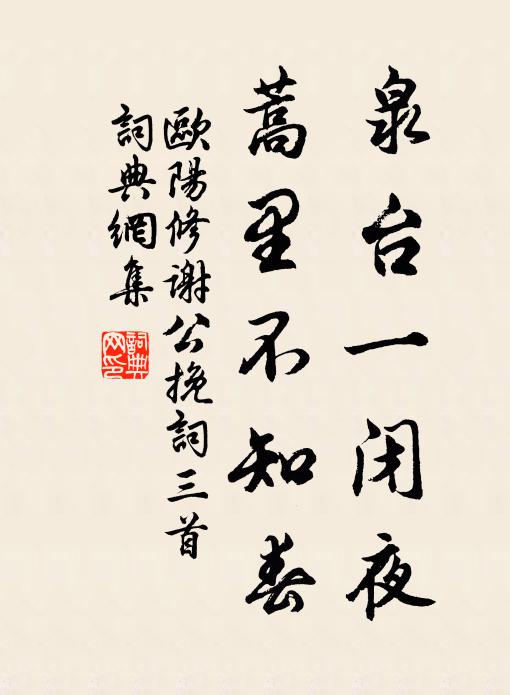 泉台一闭夜
蒿里不知春
歐陽修谢公挽詞三首
詞典網集
詞典网印